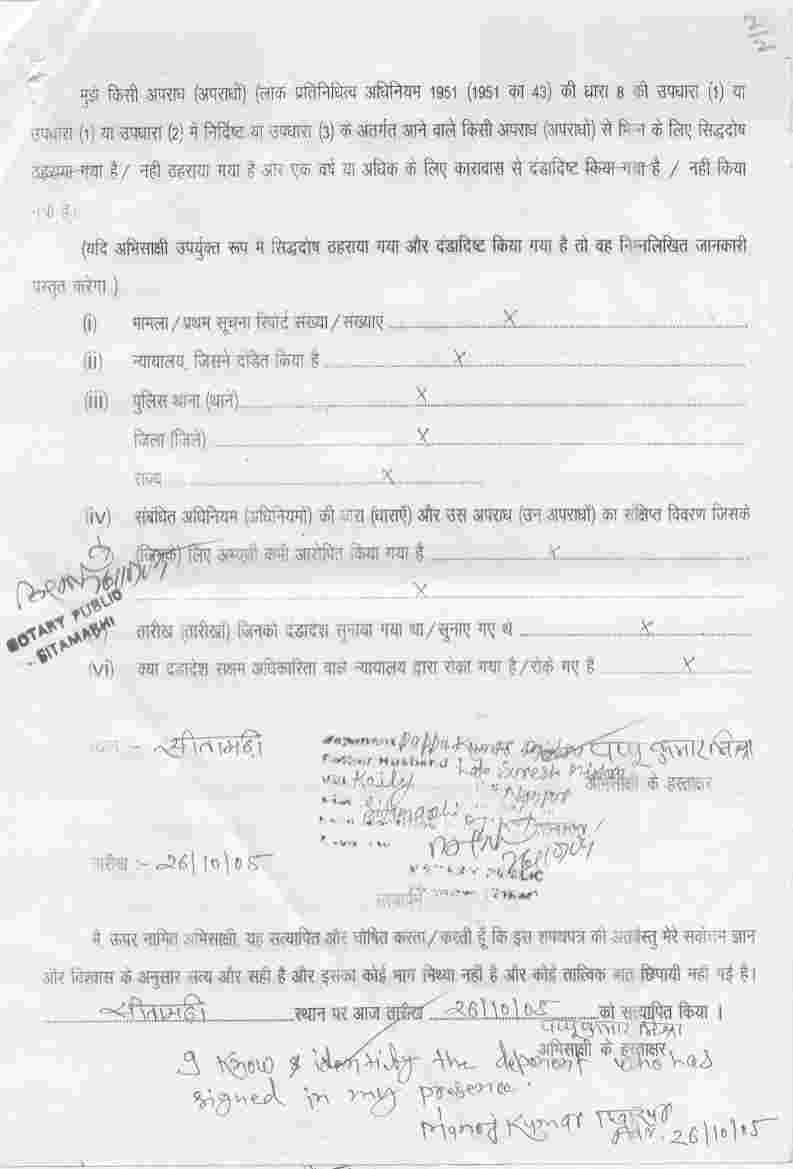 2/2
मुझे किसी अपराध (अपराधों) (लोक प्रतिनिधित्व अधिनियम 1951 (1951 का 43) की धारा 8 की उपधारा (1) या
उपधारा (1) या उपधारा (2) में निर्दिष्ट या उपधारा (3) के अंतर्गत आने वाले किसी अपराध (अपराधों) से भिन्न के लिए सिद्धदोष
ठहराया गया है / नहीं ठहराया गया है और एक वर्ष या अधिक के लिए कारावास से दंडादिष्ट किया गया है / नहीं किया
गया है।
(यदि अभिसाक्षी उपर्युक्त रूप में सिद्धदोष ठहराया गया और दंडादिष्ट किया गया है तो वह निम्नलिखित जानकारी
प्रस्तुत करेगा )
(i) मामला / प्रथम सूचना रिपोर्ट संख्या / संख्याएं X
(ii) न्यायालय, जिसने दंडित किया है X
(iii) पुलिस थाना (थाने) X
जिला (जिले) X
राज्य X
(iv) संबंधित अधिनियम (अधिनियमों) की धारा (धाराएँ) और उस अपराध (उन अपराधों) का संक्षिप्त विवरण जिसके
(जिनके) लिए अभ्यर्थी कभी आरोपित किया गया है X
X
NOTARY PUBLIC
SITAMARHI
तारीख (तारीखों) जिनको दंडादेश सुनाया गया था / सुनाए गए थे X
(vi) क्या दंडादेश सक्षम अधिकारिता वाले न्यायालय द्वारा रोका गया है / रोके गए है X
:- सीतामढ़ी
Pappu Kumar पप्पू कुमार मिश्रा
Husband Late Suresh
अभिसाक्षी के हस्ताक्षर
तारीख :- 26/10/05
PUBLIC
सत्यापन
मैं, ऊपर नामित अभिसाक्षी, यह सत्यापित और घोषित करता / करती हूँ कि इस शपथपत्र की अंतर्वस्तु मेरे सर्वोत्तम ज्ञान
और विश्वास के अनुसार सत्य और सही है और इसका कोई भाग मिथ्या नहीं है और कोई तात्विक बात छिपायी नहीं गई है।
सीतामढ़ी स्थान पर आज तारीख 26/10/05 को सत्यापित किया ।
पप्पू कुमार मिश्रा
अभिसाक्षी के हस्ताक्षर
I know & identify the deponent who has
signed in my presence.
Manoj Kumar
26/10/05